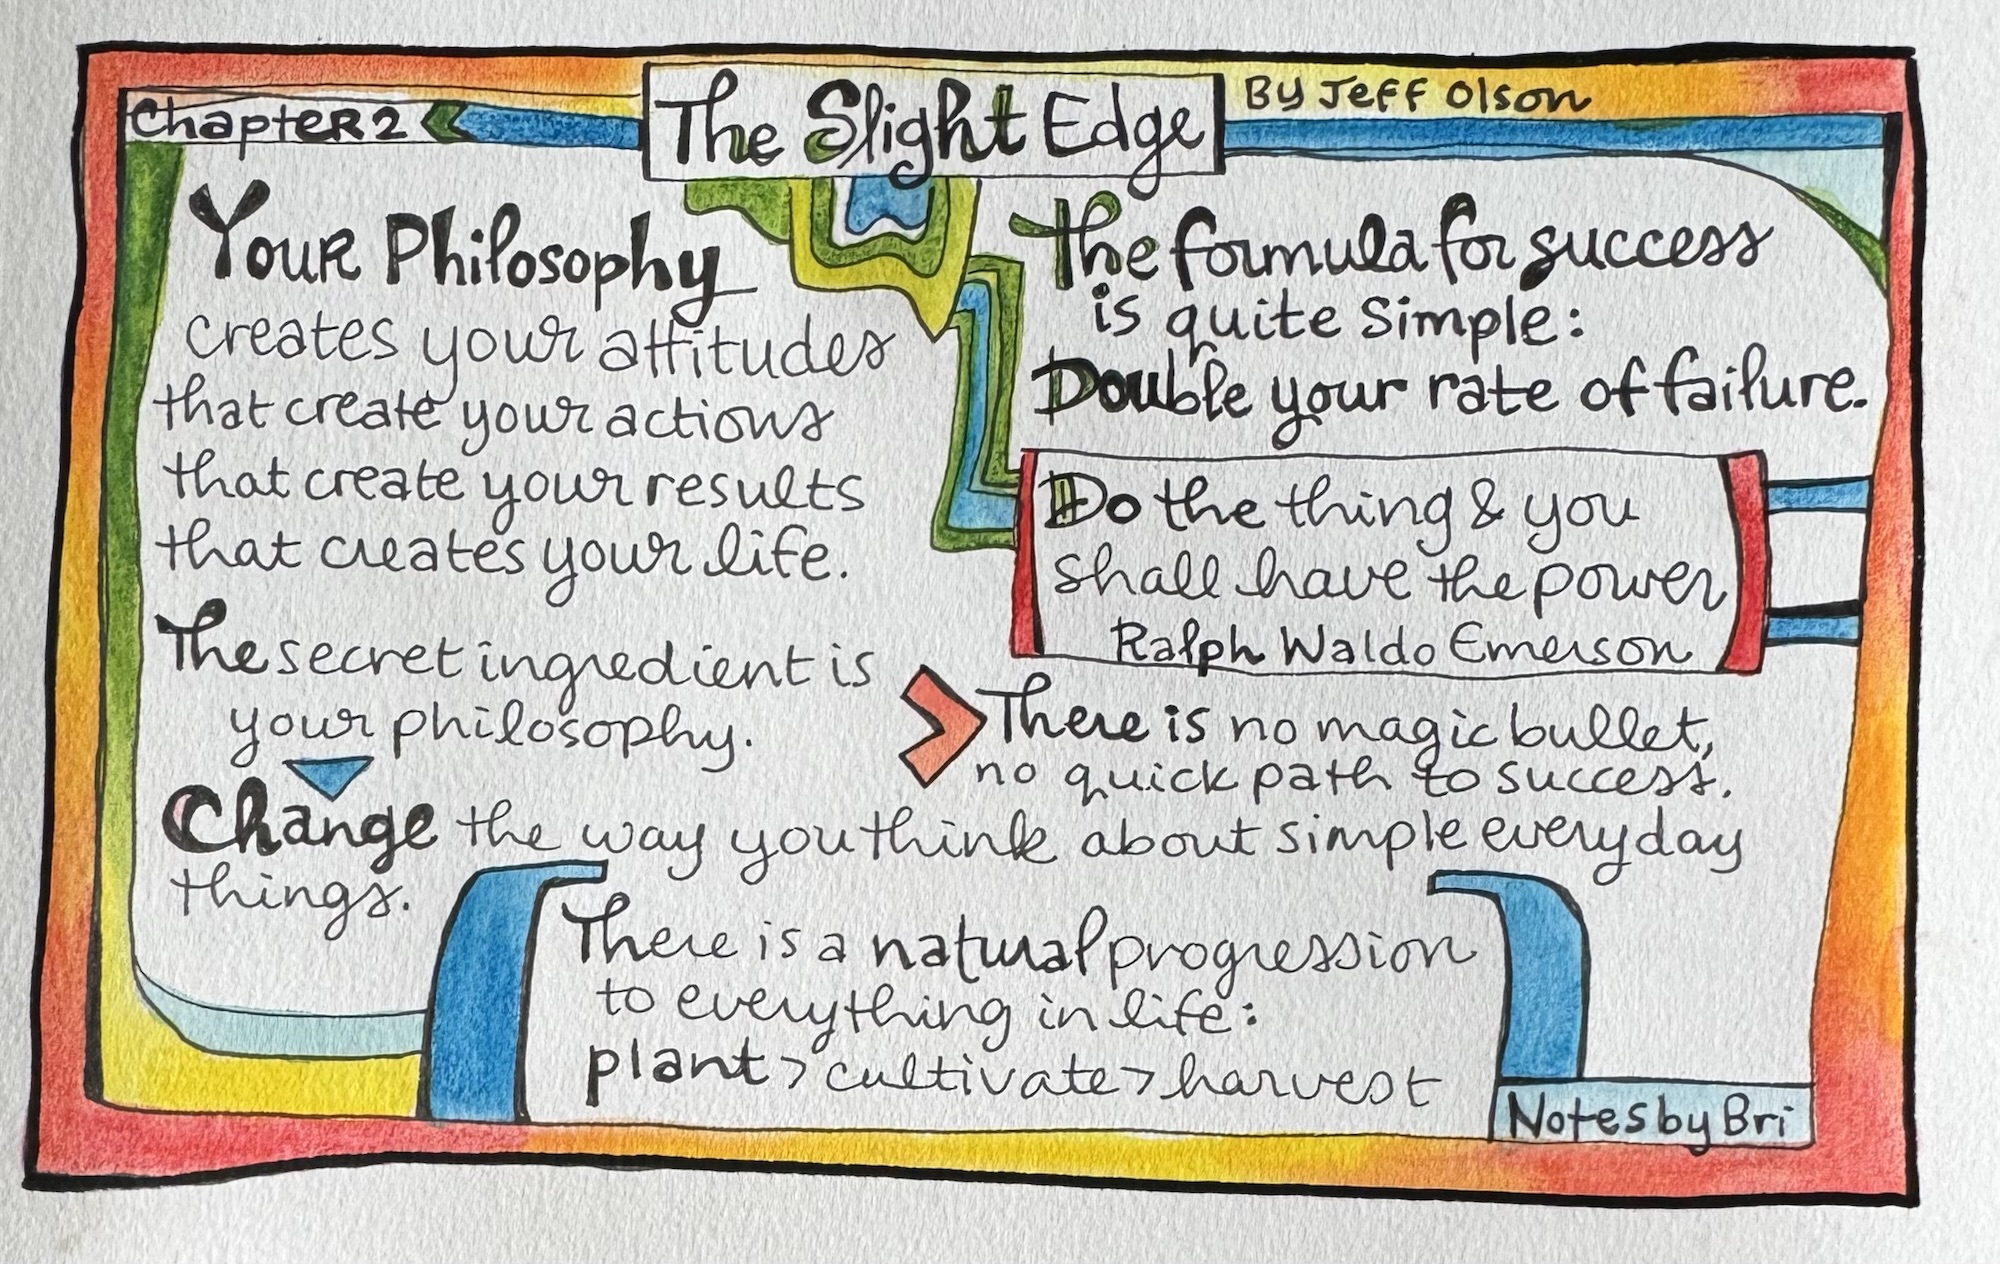 Chapter 2
The Slight Edge
By Jeff Olson
Your Philosophy
creates your attitudes
that create your actions
that create your results
that creates your life.
The secret ingredient is
your philosophy.
The formula for success
is quite simple:
Double your rate of failure.
Do the thing & you
shall have the power
Ralph Waldo Emerson
There is no magic bullet,
no quick path to success.
Change the way you think about simple everyday
things.
There is a natural progression
to everything in life:
plant > cultivate > harvest
Notes by Bri